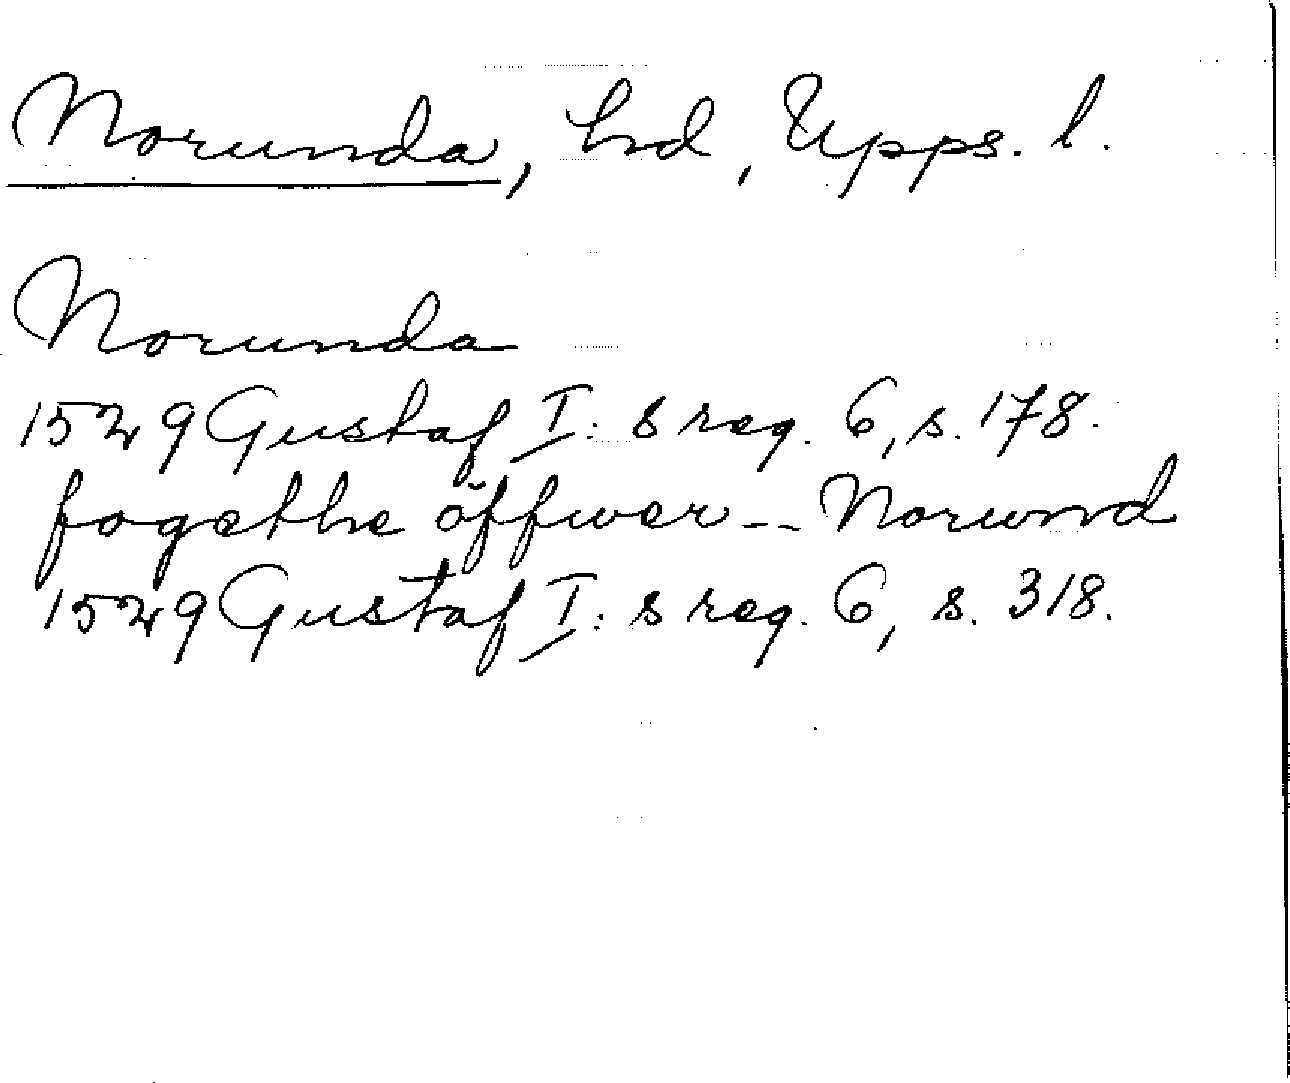 Norunda, hd, Upps. l.
Norunda
1529 Gustaf I:s reg. 6, s. 178.
fogethe öffwer -- Norwnd
1529 Gustaf I:s reg. 6, s. 318.